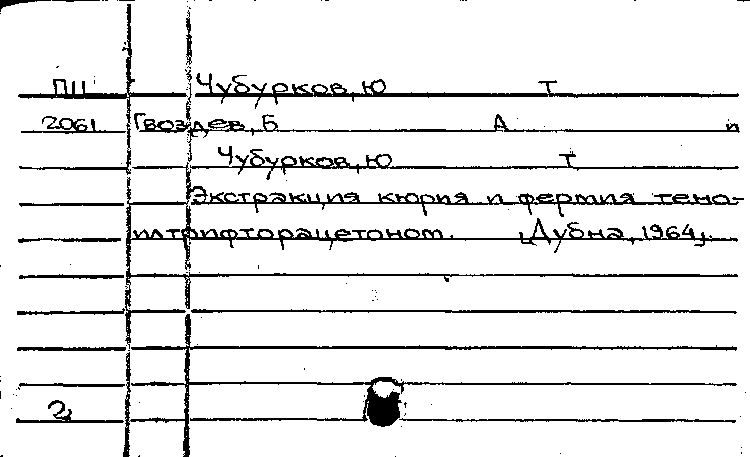 ПП Чубурков, Ю Т
2061 Гвоздев, Б А и
Чубурков, Ю Т
Экстракция кюрия и фермия тено-
илтрифторацетоном. [Дубна, 1964].
2